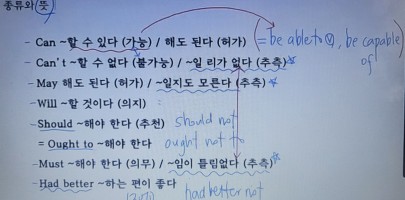 종류와 뜻
- Can ~할 수 있다 (가능) / 해도 된다 (허가) (= be able to Ⓥ, be capable of)
- Can't ~할 수 없다 (불가능) / ~일 리가 없다 (추측)
- May 해도 된다 (허가) / ~일지도 모른다 (추측)
- Will ~할 것이다 (의지)
- Should ~해야 한다 (추천) should not
= Ought to ~해야 한다 ought not to
- Must ~해야 한다 (의무) / ~임이 틀림없다 (추측)
- Had better ~하는 편이 좋다
had better not